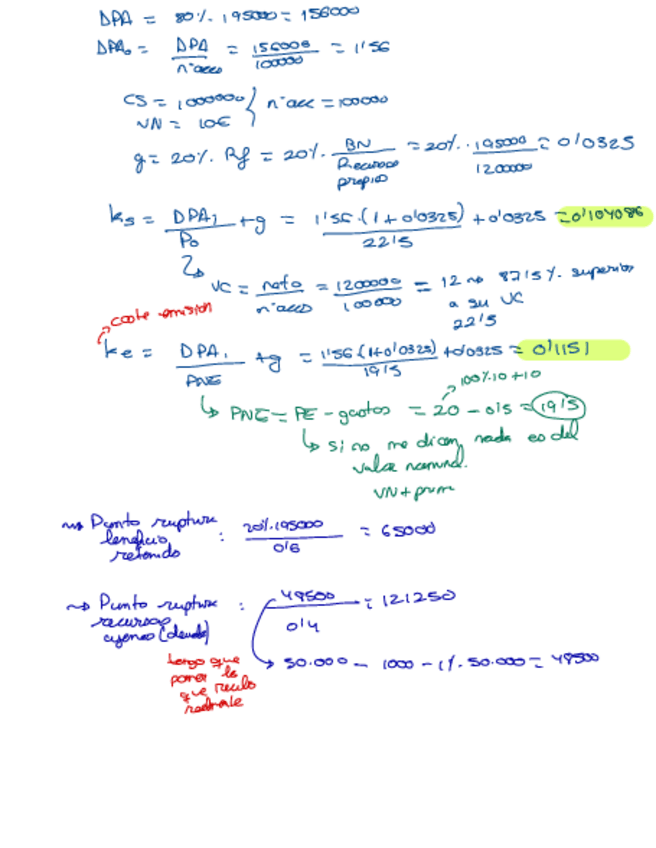 DPA = 80%. 195000 = 156000
DPAo = DPA / nºacco = 156000 / 100000 = 1'56
CS = 1000000 } nºacc = 100000
VN = 10€
g = 20%. Rf = 20%. BN / Recursos propios = 20%. 195000 / 1200000 = 0'0325
ks = DPA1 / Po + g = 1'56.(1+0'0325) / 22'5 + 0'0325 = 0'104086
VC = neto / nºacco = 1200000 / 100000 = 12 → 87'5%. superior
a su VC
22'5
coste emisión
ke = DPA1 / PNE + g = 1'56(1+0'0325) / 19'5 + 0'0325 = 0'1151
100%10+10
PNE = PE - gastos = 20 - 0'5 = 19'5
si no me dicen nada es del
valor nominal.
VN + prima
Punto ruptura
beneficio
retenido : 20%.195000 / 0'6 = 65000
Punto ruptura
recursos
ajenos (deuda) : 48500 / 0'4 = 121250
50.000 - 1000 - 1%. 50.000 = 48500
tengo que
poner lo
que recibo
realmente